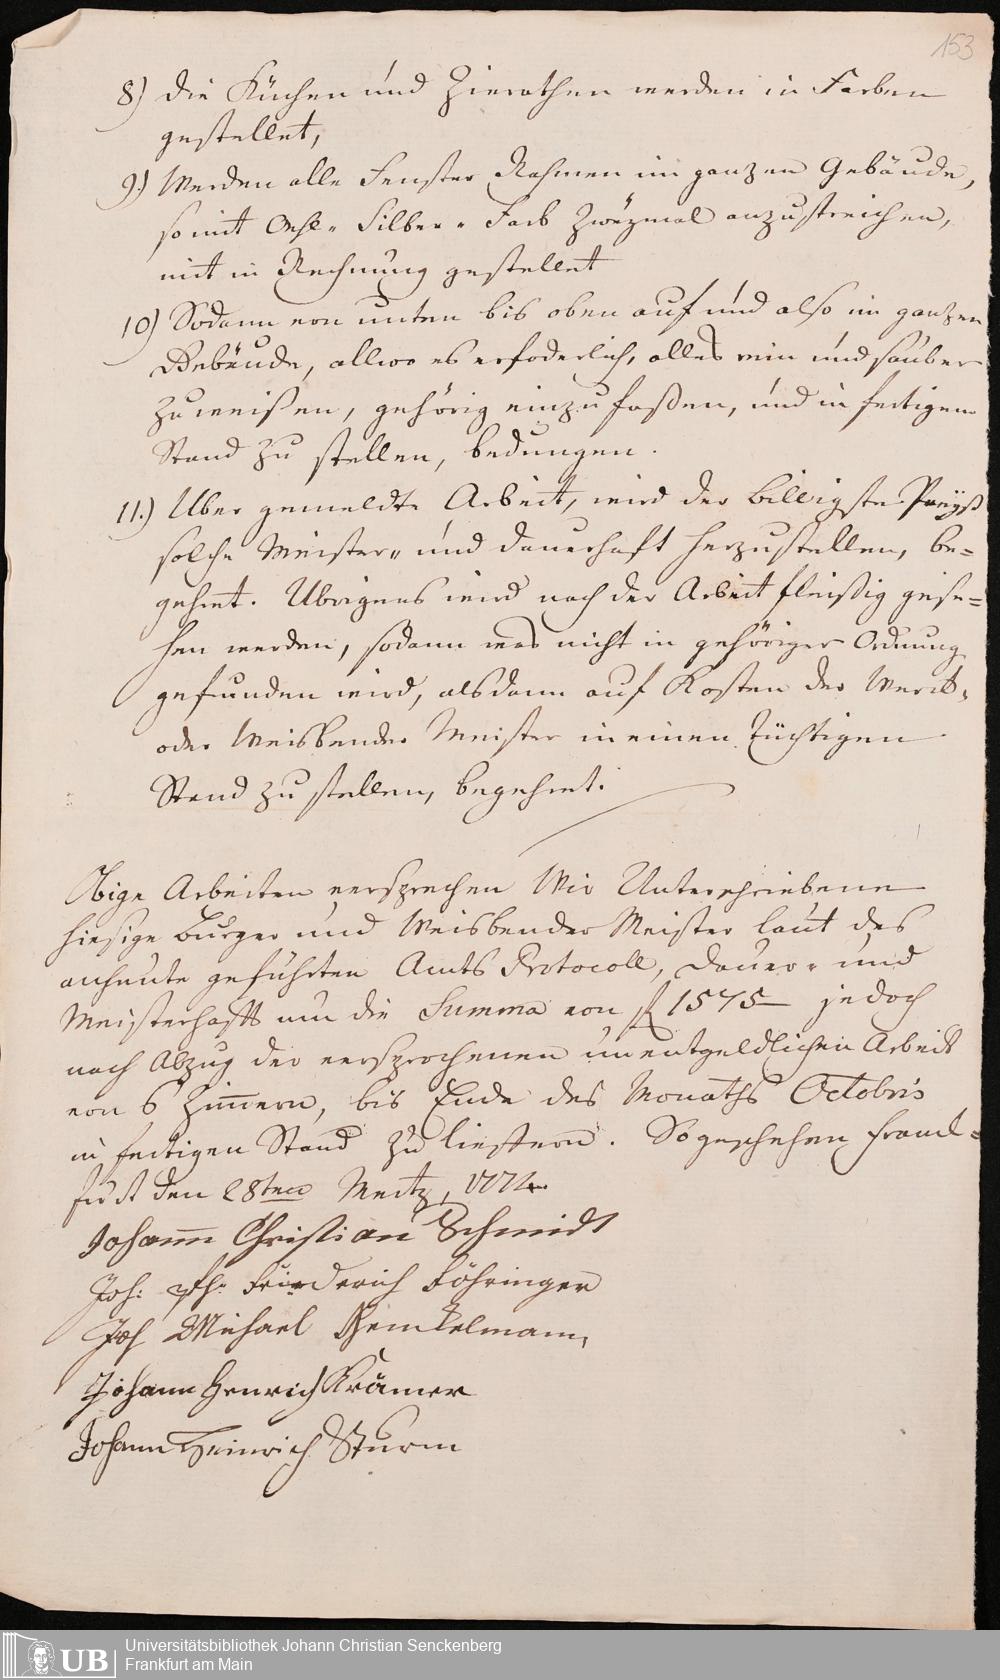 153
8) die Küchen und Zierathen werden in Farben
gestellet,
9.) Werden alle Fenster Rahmen im ganzen Gebäude,
so mit Oehl- Silber- Farb Zweÿmal anzustreichen,
mit in Rechnung gestellet
10) Sodann von unten bis oben auf und also im ganzen
Gebäude, allwo es erfoderlich, alles rein und sauber
zu weißen, gehörig einzufaßen, und in fertigen
Stand zu stellen, bedungen.
11.) Uber gemeldte Arbeit, wird der billigste Preÿß
solche Meister- und dauerhaft herzustellen, be=
gehret. Ubrigens wird nach der Arbeit fleißig gese=
hen werden, sodann was nicht in gehöriger Ordnung
gefunden wird, alsdann auf Kosten der Werck-
oder Weisbender Meister in einen tüchtigen
Stand zu stellen, begehret.
Obige Arbeiten versprechen Wir Unterschriebene
hiesige Burger und Weisbender Meister laut des
anheute geführten Amts Protocoll, Dauer- und
Meisterhafft um die Summa von fl 1575 jedoch
nach Abzug der versprochenen unentgeldlichen Arbeit
von 6 Zimern, bis Ende des Monaths Octobris
in fertigen Stand zu lieffern. So geschehen Franck=
furt den 28ten Mertz, 1774.
Johann Christian Schmidt
Joh: Ph: Friederich Böhringer
Joh Michael
Johann Henrich Krämer
Johann Heinrich Sturm
UB
Universitätsbibliothek Johann Christian Senckenberg
Frankfurt am Main